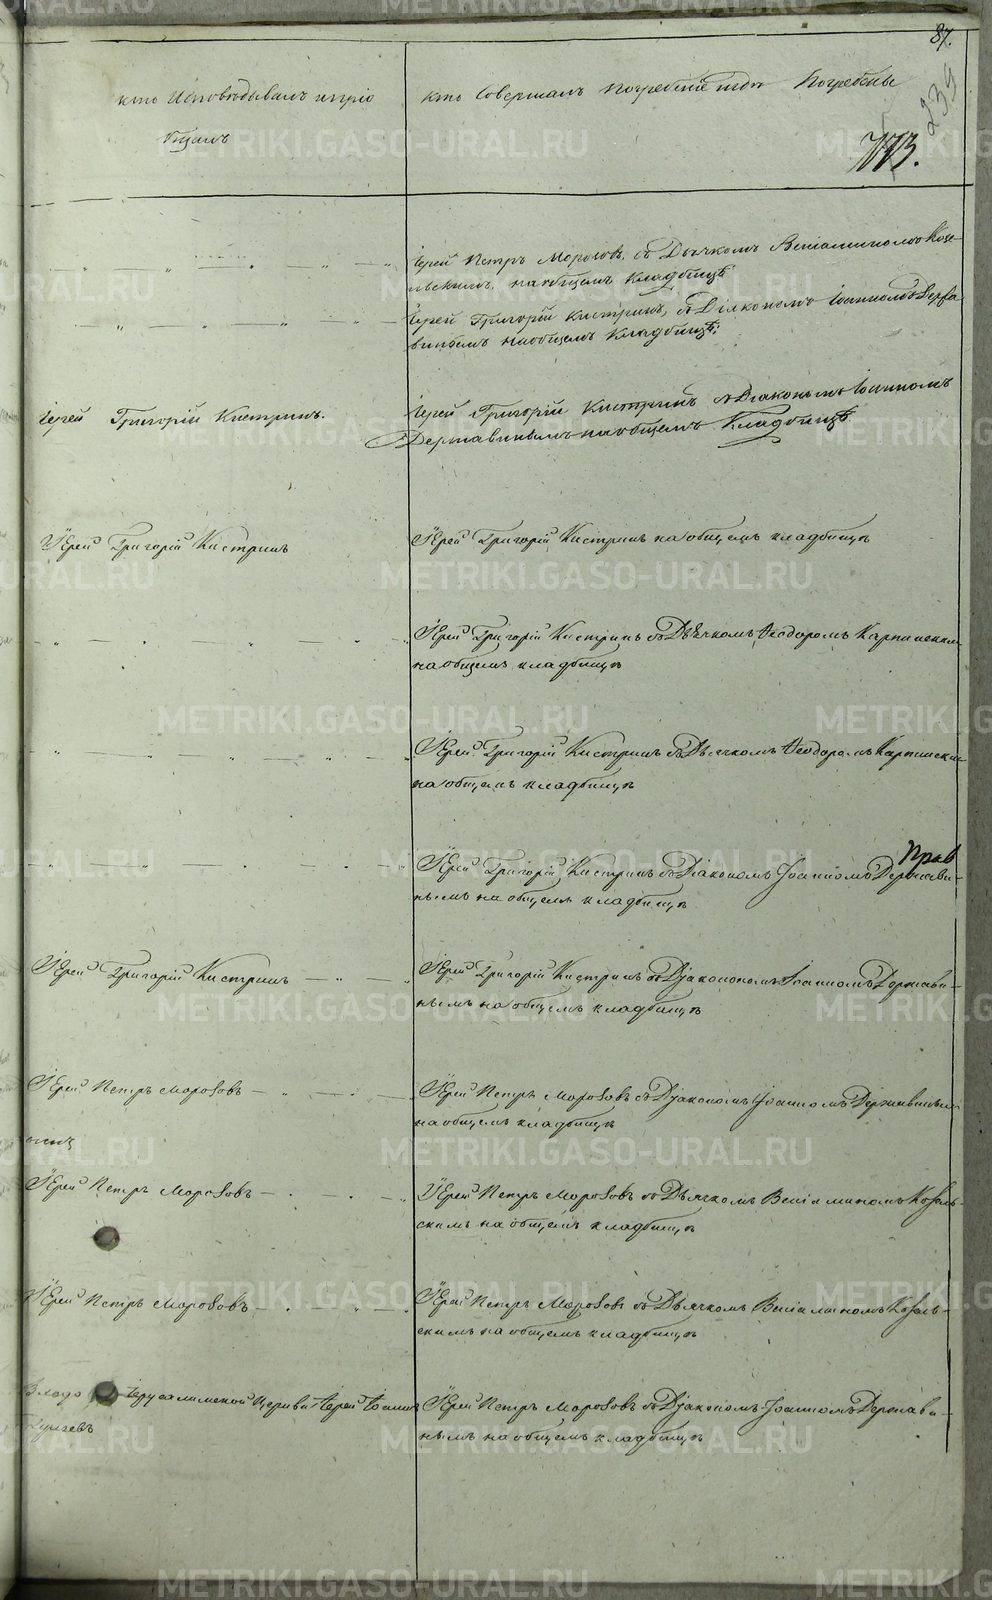 87.
235
773.
кто Исповѣдывалъ и прiо
бщалъ
кто Совершалъ погребенiе и гдѣ Погребены
Iерей Петръ Морозовъ, съ Дьячкомъ Венiаминомъ Козе-
льскимъ, на общемъ Кладбищѣ
Iерей Григорiй Кистринъ, съ Дiакономъ Iоанномъ Держа-
винымъ на общемъ Кладбищѣ:
Iерей Григорiй Кистринъ.
Iерей Григорiй Кистринъ съ Дiакономъ Iоанномъ
Державинымъ на общемъ Кладбищѣ
Iерей Григорiй Кистринъ
Iерей Григорiй Кистринъ на общемъ кладбищѣ
Iерей Григорiй Кистринъ съ Дьячкомъ Ѳеодоромъ Карпинским
на общемъ кладбищѣ
Iерей Григорiй Кистринъ съ Дьячкомъ Ѳеодоромъ Карпинским
на общемъ кладбищѣ
Прав
Iерей Григорiй Кистринъ съ Дiакономъ Iоанномъ Держави-
нымъ на общемъ кладбищѣ
Iерей Григорiй Кистринъ
Iерей Григорiй Кистринъ съ Дiакономъ Iоанномъ Держави-
нымъ на общемъ кладбищѣ
Iерей Петръ Морозовъ
Iерей Петръ Морозовъ съ Дiакономъ Iоанномъ Державинымъ
на общемъ кладбищѣ
Iерей Петръ Морозовъ
Iерей Петръ Морозовъ съ Дьячкомъ Венiаминомъ Козель-
скимъ на общемъ кладбищѣ
Iерей Петръ Морозовъ
Iерей Петръ Морозовъ съ Дьячкомъ Венiаминомъ Козель-
скимъ на общемъ кладбищѣ
Iерусалимской Церкви Iерей Iоаннъ
Iерей Петръ Морозовъ съ Дiакономъ Iоанномъ Держави-
нымъ на общемъ кладбищѣ
METRIKI.GASO-URAL.RU